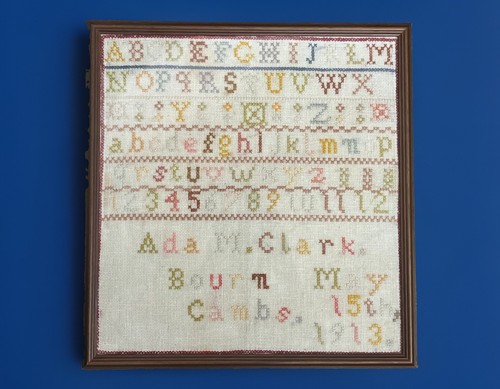 ABCDEFGHIJKLM
NOPQRSTUVWX
Y Z
abcdefghijklmnop
qrstuvwxyz
1 2 3 4 5 6 7 8 9 10 11 12
Ada M. Clark.
Bourn May
Cambs, 15th,
1913.